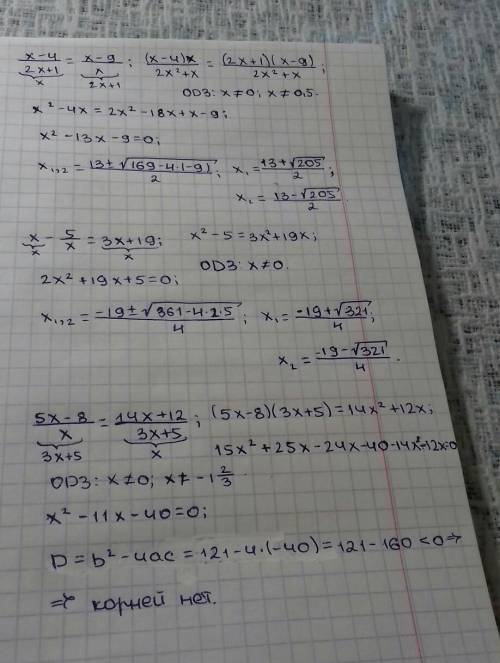 (x-4)/(2x+1) = (x-9)/x ; ((x-4)x)/(2x²+x) = ((2x+1)(x-9))/(2x²+x) ;
x 2x+1
ОДЗ: x≠0; x≠0,5.
x²-4x=2x²-18x+x-9;
x²-13x-9=0;
x₁,₂=(13±√(169-4·1·-9))/2; x₁=(13+√205)/2;
x₂=(13-√205)/2.
x/x - 5/x = (3x+19)/x; x²-5=3x²+19x;
ОДЗ: x≠0.
2x²+19x+5=0;
x₁,₂=(-19±√(361-4·2·5))/4; x₁=(-19+√321)/4;
x₂=(-19-√321)/4.
(5x-8)/x = (14x+12)/(3x+5); (5x-8)(3x+5)=14x²+12x;
3x+5 x
15x²+25x-24x-40-14x²-12x=0
ОДЗ: x≠0; x≠-1 2/3.
x²-11x-40=0;
D=b²-4ac=121-4·(-40)=121-160<0⇒
⇒ корней нет.